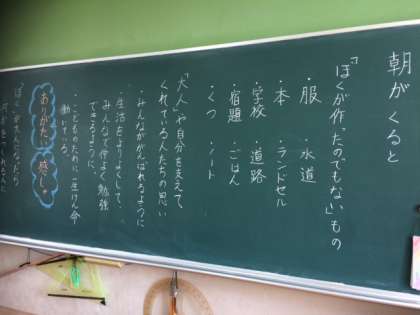 朝がくると
「ぼくが作ったのでもない」もの
・服 ・水道
・本 ・ランドセル
・学校 ・道路
・宿題 ・ごはん
・くつ ・ノート
「大人」や自分を支えて
くれている人たちの思い
・みんながかんばれるように
・生活をよりよくして、
みんなで仲よく勉強
できるように。
・こどものために一生けん命
働いている。
ありがたい 感しゃ
ぼくが大人になったら
何かをつくれる人に